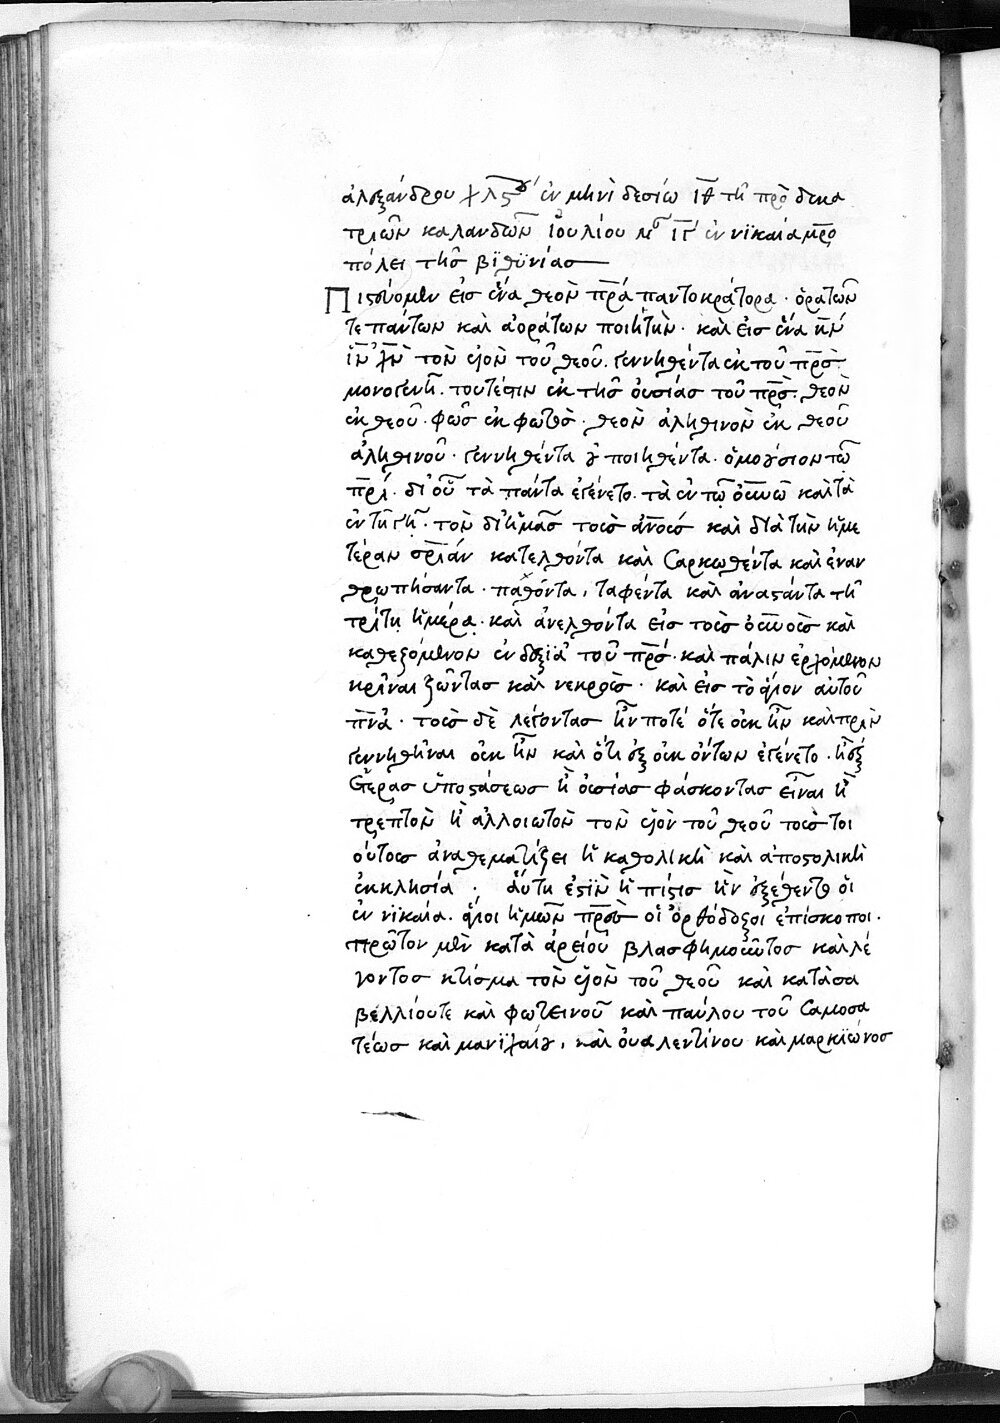 ἀλεξάνδρου χλϛ ἐν μηνὶ δεσίω ιθ τῆ πρὸ δεκα
τριῶν καλανδῶν ϊουλίου ιγ ἐν νϊκαία μρο
πόλει τῆς βϊθϋνίας
Πιστεύομεν εἰς ἕνα θεὸν πρα παντοκράτορα · ὁρατῶν
τε πάντων καὶ ἀοράτων ποιητὴν · καὶ εἰς ἕνα κν
ιν χν τὸν υἱὸν τοῦ θεοῦ · γεννηθέντα ἐκ τοῦ πρς ·
μονογενῆ · τουτέστιν ἐκ τῆς οὐσίας τοῦ πρς · θεὸν
ἐκ θεοῦ · φῶς ἐκ φωτὸς · θεὸν ἀληθινὸν ἐκ θεοῦ
ἀληθινοῦ · γεννηθέντα οὐ ποιηθέντα · ὁμοούσιον τῶ
πρι · δι' οὗ τὰ πάντα ἐγένετο · τὰ ἐν τῶ οὐνῶ καὶ τὰ
ἐν τῆ γῆ · τὸν δι' ἡμᾶς τοὺς ἀνους καὶ διὰ τὴν ἡμε
τέραν σριαν κατελθόντα καὶ σαρκωθέντα καὶ ἐναν
θρωπήσαντα · παθόντα, ταφέντα καὶ ἀναστάντα τῆ
τρίτη ἡμέρα · καὶ ἀνελθόντα εἰς τοὺς οὐνοὺς καὶ
καθεζόμενον ἐν δεξιᾶ τοῦ πρς · καὶ πάλιν ἐρχόμενον
κρῖναι ζῶντας καὶ νεκροὺς · καὶ εἰς τὸ ἅγιον αὐτοῦ
πνα · τοὺς δὲ λέγοντας ἦν ποτέ ὅτε οὐκ ἦν καὶ πρὶν
γεννηθῆναι οὐκ ἦν καὶ ὅτι ἐξ οὐκ ὄντων ἐγένετο · ἢ ἐξ
ἑτέρας ὑποστάσεως ἢ οὐσίας φάσκοντας εἶναι ἢ
τρεπτὸν ἢ ἀλλοιωτὸν τὸν υἱὸν τοῦ θεοῦ τοὺς τοι
ούτους ἀναθεματίζει ἡ καθολικὴ καὶ ἀποστολικὴ
ἐκκλησία · αὕτη ἐστὶν ἡ πίστις ἣν ἐξέθεντο οἱ
ἐν νϊκαία · ἅγιοι ἡμῶν πρες οἱ ὀρθόδοξοι ἐπίσκοποι ·
πρῶτον μὲν κατὰ ἀρείου βλασφημοῦντος καὶ λέ
γοντος κτίσμα τὸν υἱὸν τοῦ θεοῦ καὶ κατὰ σα
βελλίου τε καὶ φωτεινοῦ καὶ παύλου τοῦ σαμοσα
τέως καὶ μανϊχαίου, καὶ οὐαλεντίνου καὶ μαρκϊώνος